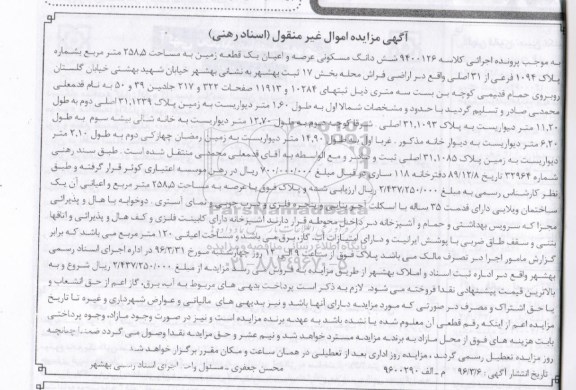 آگهی مزایده اموال غیر منقول (اسناد رهنی)
به موجب پرونده اجرائی کلاسه ۹۴۰۰۱۲۶ شش دانگ مسکونی عرضه و اعیان یک قطعه زمین به مساحت ۲۵۸,۵ متر مربع بشماره
پلاک ۱۰۹۴ فرعی از ۳۱ اصلی واقع در اراضی فراش محله بخش ۱۷ ثبت بهشهر به نشانی بهشهر خیابان شهید بهشتی خیابان گلستان
روبروی حمام قدیمی کوچه بن بست سه متری ذیل ثبتهای ۱۰۲۸۴ و ۱۱۹۱۳ صفحات ۳۲۲ و ۲۱۷ جلدین ۳۹ و ۵۰ به نام قدمعلی
محمدنی صادر و تسلیم گردید با حدود و مشخصات شمالا اول به طول ۱,۶۰ متر دیواریست به زمین پلاک ۳۱,۱۳۳۹ اصلی دوم به طول
۱۱,۲۰ متر دیواریست به پلاک ۳۱,۱۰۹۳ اصلی شرقا کوچه سوم به طول ۱۲,۷۰ متر دیواریست به خانه شالی بیشه سوم به طول
۶,۲۰ متر دیواریست به دیوار خانه مذکور. غربا اول به طول ۱۴,۹۰ متر دیواریست به زمین رمضان چهارکی دوم به طول ۲,۱۰ متر
دیواریست به زمین پلاک ۳۱,۱۰۸۵ اصلی ثبت و صادر و مع الواسطه به آقای قدمعلی محمدنی منتقل شده است. طبق سند رهنی
شماره ۳۲۹۶۴ تاریخ ۸۹/۱۲/۸ دفترخانه ۱۱۸ ساری در قبال مبلغ ۷۰۰/۰۰۰/۰۰۰ ریال در رهن موسسه اعتباری کوثر قرار گرفته و طبق
نظر کارشناس رسمی به مبلغ ۲/۴۳۷/۲۵۰/۰۰۰ ریال ارزیابی شده و پلاک فوق با عرصه به مساحت ۲۵۸,۵ متر مربع و اعیانی آن یک
ساختمان ویلایی دارای قدمت ۳۵ ساله با اسکلت آجر بنایی و پنجره فلزی و درب چوبی و نمای آستری. دوخوابه با هال و پذیرائی
مجزا که سرویس بهداشتی و حمام و آشپزخانه در داخل محوطه قرار دارند آشپزخانه دارای کابینت فلزی و کف هال و پذیرائی و اتاقها
بتنی و سقف طاق ضربی با پوشش ایرانیت و دارای امتیازات آب، گاز، برق می باشد و مساحت اعیانی ۱۲۰ متر مربع می باشد که برابر
گزارش مامور اجرا در تصرف مالک می باشد پلاک فوق از ساعت ۹ الی ۱۲ روز چهارشنبه مورخ ۹۶/۳/۳۱ در اداره اجرای اسناد رسمی
بهشهر واقع در اداره ثبت اسناد و املاک بهشهر از طریق مزایده به فروش می رسد. مزایده از مبلغ ۲/۴۳۷/۲۵۰/۰۰۰ ریال شروع و به
بالاترین قیمت پیشنهادی نقدا فروخته می شود. لازم به ذکر است پرداخت بدهی های مربوط به آب، برق، گاز اعم از حق انشعاب و
یا حق اشتراک و مصرف در صورتی که مورد مزایده دارای آنها باشد و نیز بدیهی های مالیاتی و عوارض شهرداری و غیره تا تاریخ
مزایده اعم از اینکه رقم قطعی آن معلوم شده یا نشده باشد به عهده برنده مزایده است و نیز در صورت وجود مازاد، وجوه پرداختی
بابت هزینه های فوق از محل مازاد به برنده مزایده مسترد خواهد شد و نیم عشر و حق مزایده نقدا وصول می گردد ضمنا چنانچه
روز مزایده تعطیل رسمی گردد، مزایده روز اداری بعد از تعطیلی در همان ساعت و مکان مقرر برگزار خواهد شد
تاریخ انتشار آگهی: ۹۶/۳/۶ م الف ۹۶۰۰۳۹۰ محسن جعفری - مسئول واحد اجرای اسناد رسمی بهشهر